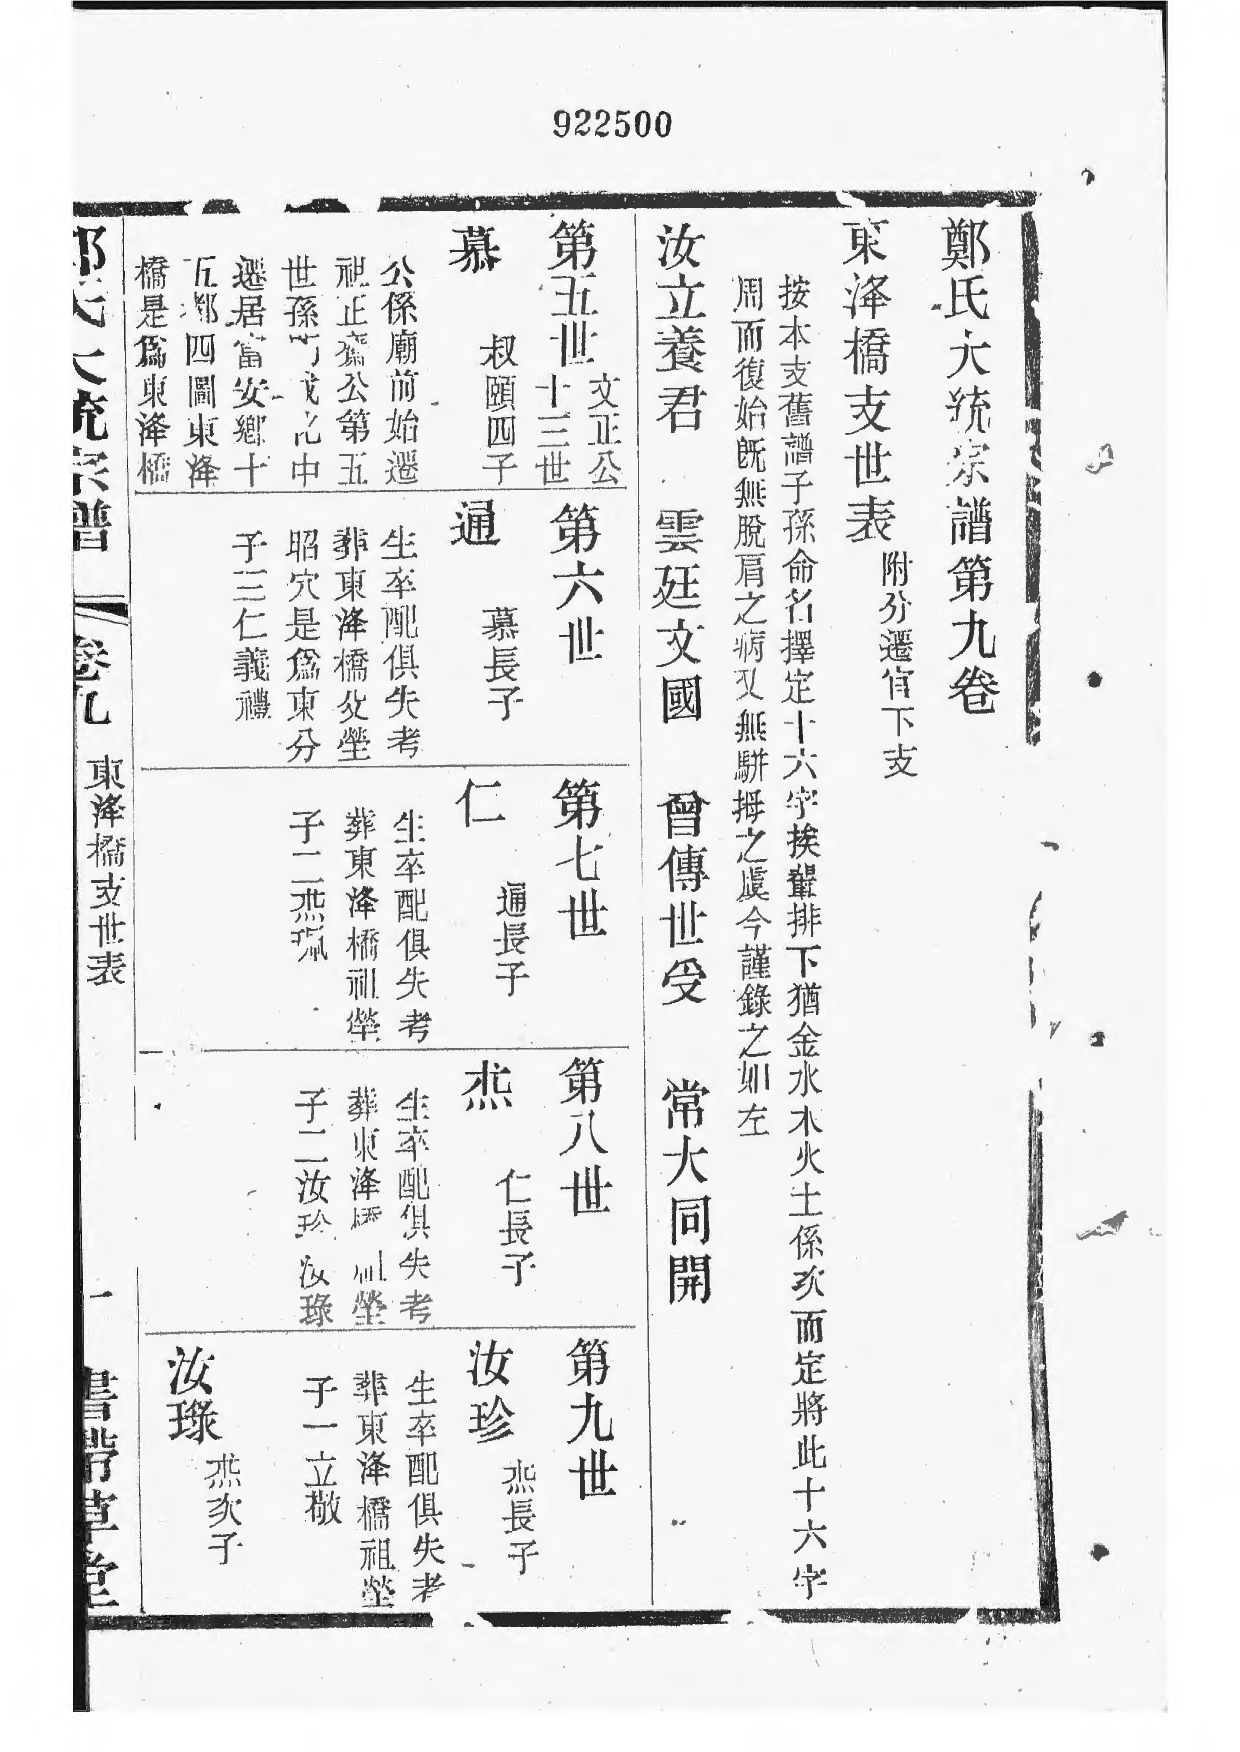 922500
鄭氏大統宗譜第九卷
東洚橋支世表
附分遷官下支
按本支舊譜子孫命名擇定十六字挨輩排下猶金水木火土係次而定將此十六字
周而復始旣無脫肩之病又無駢拇之虞今謹錄之如左
汝立養君 雲廷文國 曾傳世受 常大同開
第五世
文正公
十三世
慕
叔頤四子
公係廟前始遷
祖正齋公第五
世孫 成化中
遷居富安鄉十
五都四圖東洚
橋是爲東洚橋
第六世
通
慕長子
生卒配俱失考
葬東洚橋攵塋
昭穴是爲東分
子三仁義禮
第七世
仁
通長子
生卒配俱失考
葬東洚橋祖塋
子二烝珮
第八世
烝
仁長子
生卒配俱失考
葬東洚橋祖塋
子二汝珍汝琭
第九世
汝珍
烝長子
生卒配俱失考
葬東洚橋祖塋
子一立敬
汝琭
烝次子
鄭氏大統宗譜
卷九
東洚橋支世表
一
書帶草堂